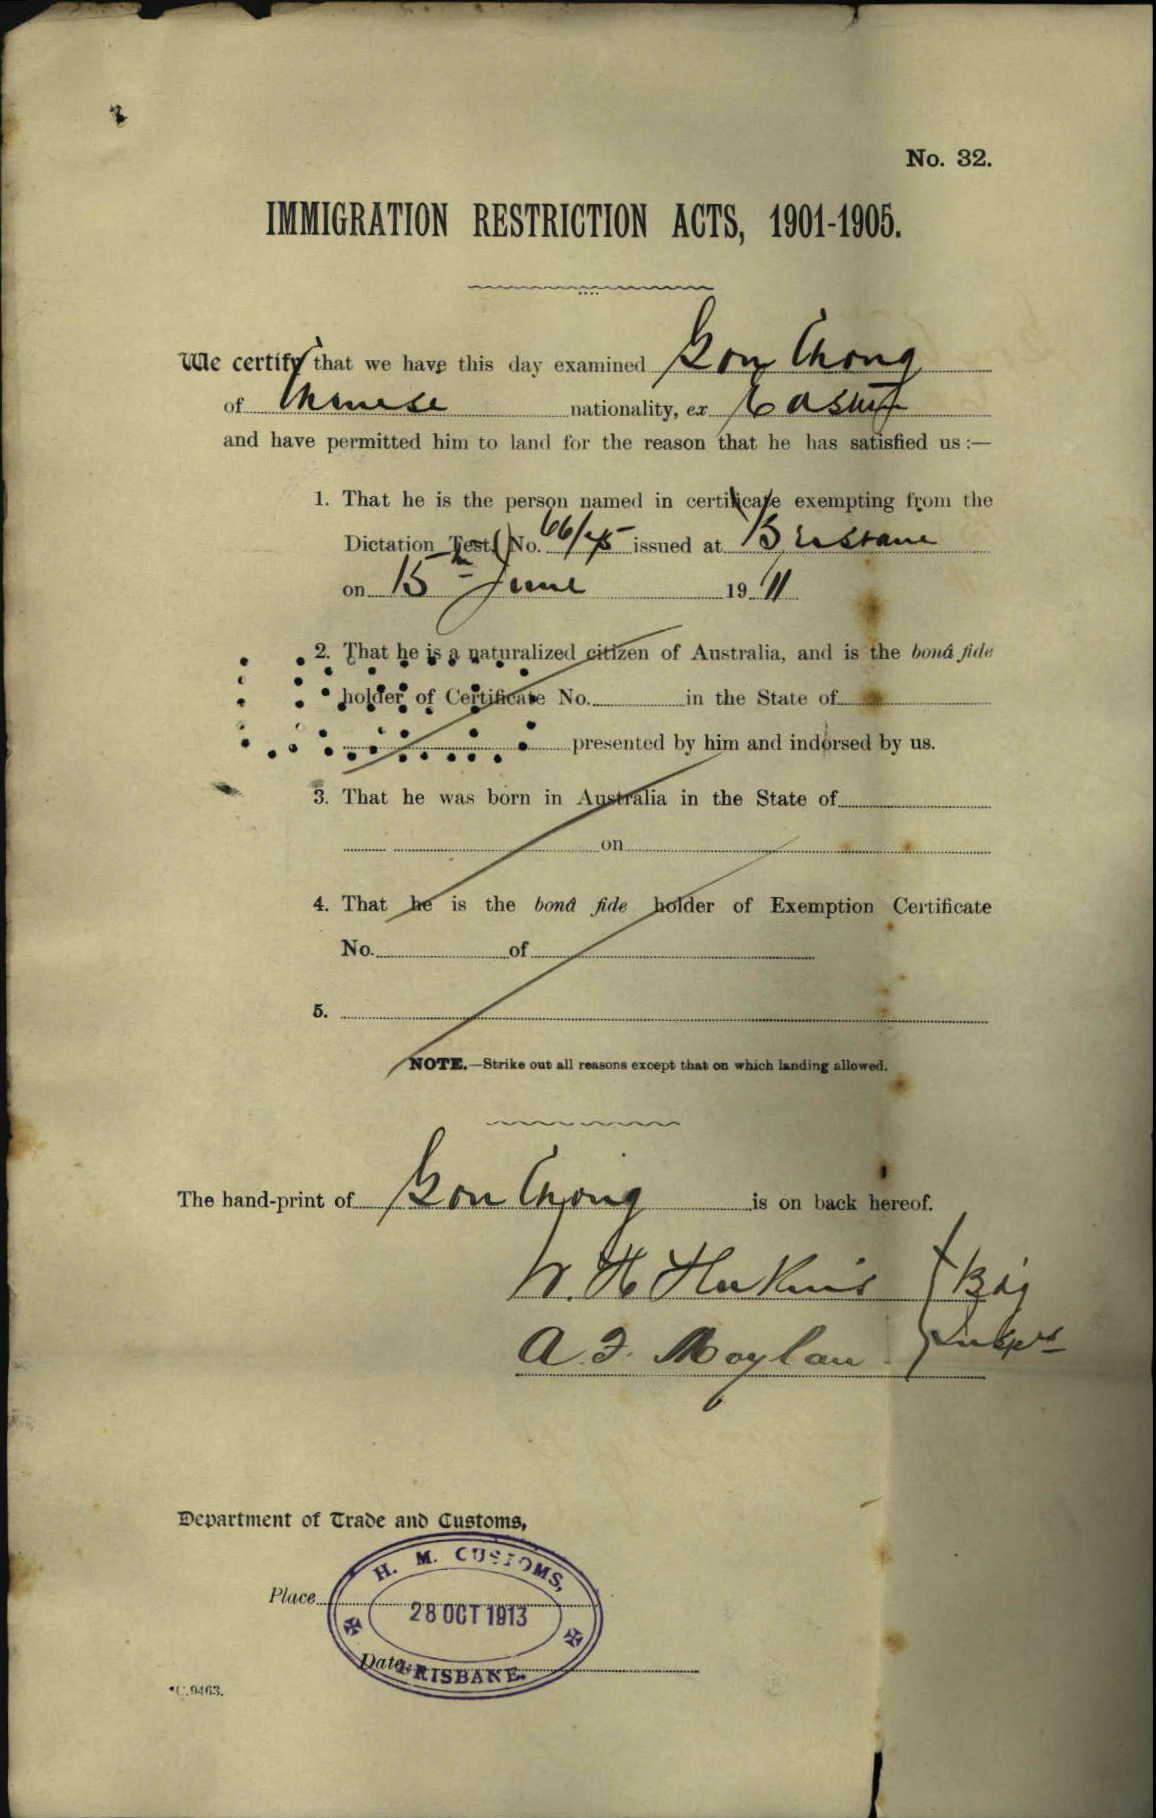 No. 32.
IMMIGRATION RESTRICTION ACTS, 1901-1905.
We certify that we have this day examined Gon Chong
of Chinese nationality, ex Eastern
and have permitted him to land for the reason that he has satisfied us :—
1. That he is the person named in certificate exempting from the
Dictation Test (No. 66/45 issued at Brisbane
on 15th June 1911
2. That he is a naturalized citizen of Australia, and is the boná fide
holder of Certificate No. in the State of
presented by him and indorsed by us.
3. That he was born in Australia in the State of
on
4. That he is the boná fide holder of Exemption Certificate
No. of
5.
NOTE.—Strike out all reasons except that on which landing allowed.
The hand-print of Gon Chong is on back hereof.
W. H.
A. J. Moylan
Department of Trade and Customs,
H. M. CUSTOMS,
Place
28 OCT 1913
Date
BRISBANE.
C.9463.